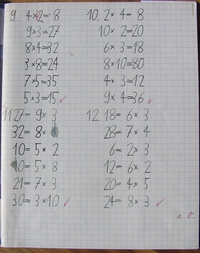 9. 4×2=8
9×3=27
8×4=32
3×8=24
7×5=35
5×3=15
10. 2×4=8
10×2=20
6×3=18
8×10=80
4×3=12
9×4=36
11. 27=9×3
32=8×
10=5×2
10=5×8
21=7×3
30=3×10
12. 18=6×3
28=7×4
6=2×3
12=6×2
20=4×5
24=8×3